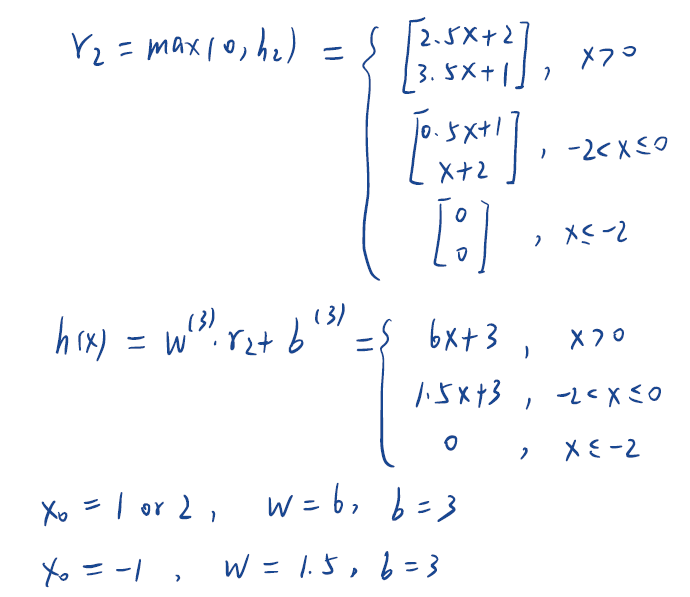 r₂ = max(0, h₂) = { [2.5x+2 / 3.5x+1], x>0
[0.5x+1 / x+2], -2<x≤0
[0 / 0], x≤-2
h(x) = w⁽³⁾·r₂+b⁽³⁾ = { 6x+3, x>0
1.5x+3, -2<x≤0
0, x≤-2
x₀ = 1 or 2, w=6, b=3
x₀ = -1, w = 1.5, b=3